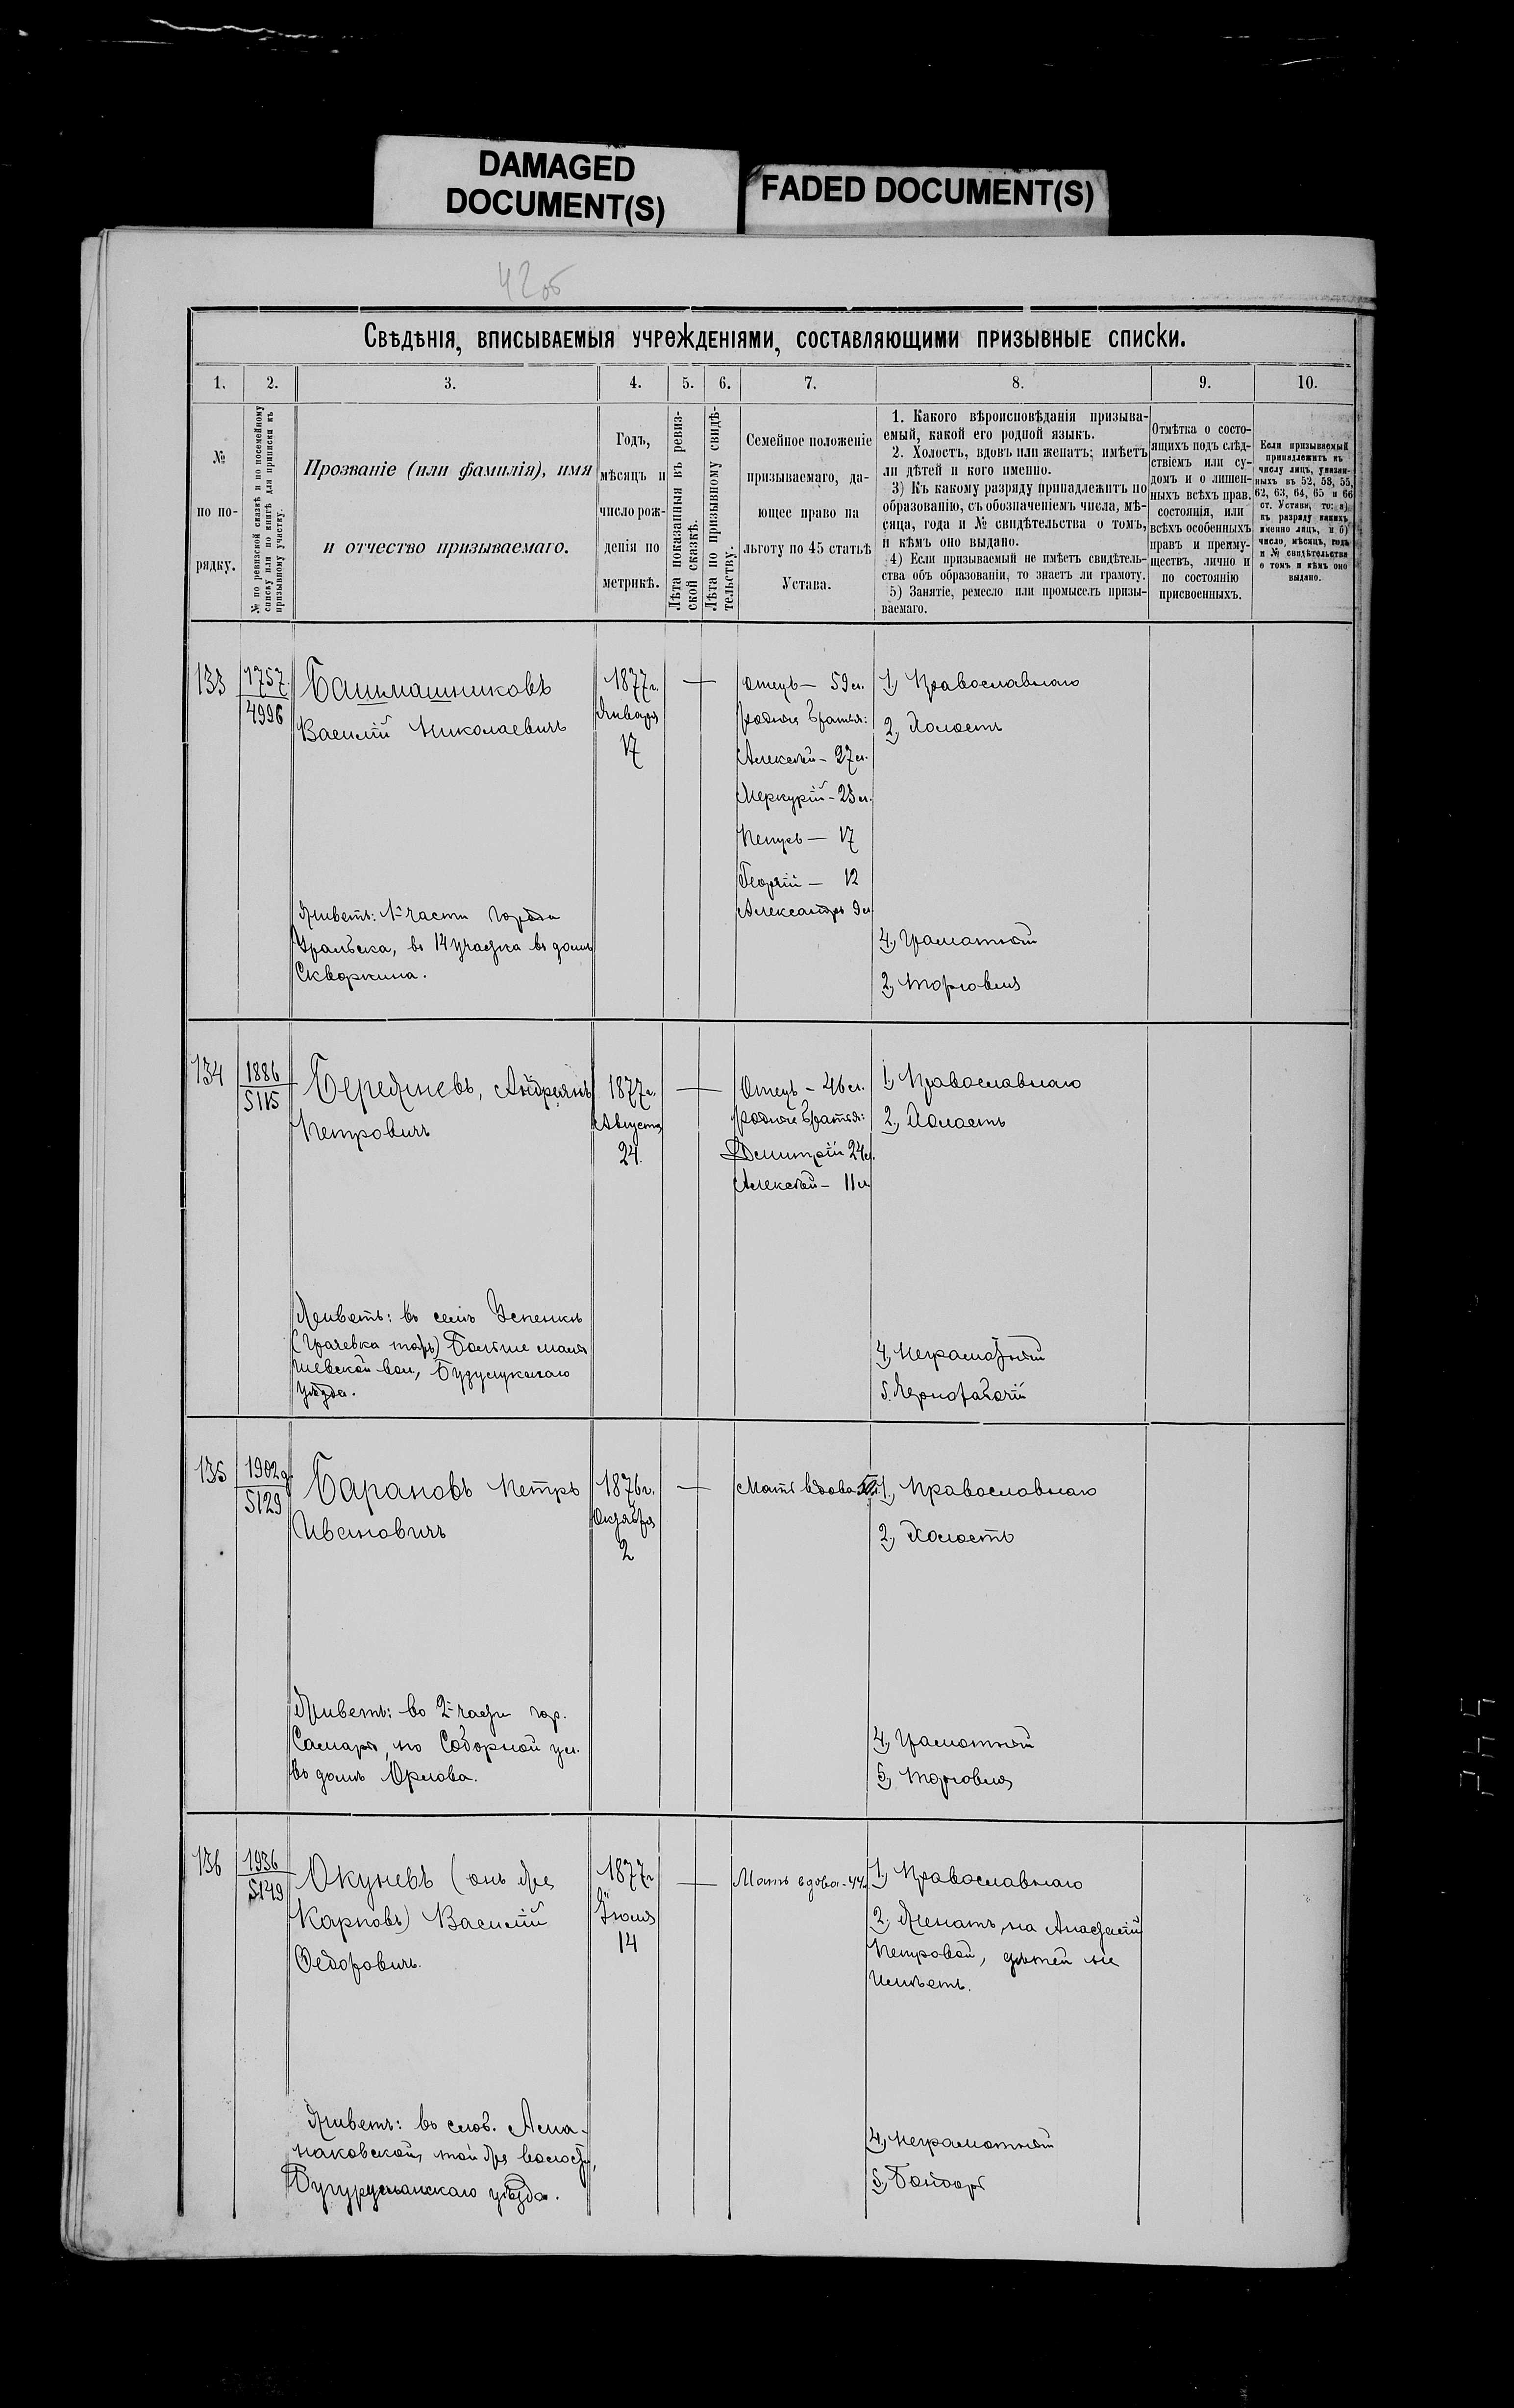 DAMAGED
DOCUMENT(S)
FADED DOCUMENT(S)
42об
Свѣдѣнія, вписываемыя учрежденіями, составляющими призывные списки.
1. 2. 3. 4. 5. 6. 7. 8. 9. 10.
№
по по-
рядку.
№ по ревизской сказкѣ и по посемейному
списку или по книгѣ для приписки къ
призывному участку.
Прозваніе (или фамилія), имя
и отчество призываемаго.
Годъ,
мѣсяцъ и
число рож-
денія по
метрикѣ.
Лѣта показанныя въ ревиз-
ской сказкѣ.
Лѣта по призывному свидѣ-
тельству.
Семейное положеніе
призываемаго, да-
ющее право на
льготу по 45 статьѣ
Устава.
1. Какого вѣроисповѣданія призыва-
емый, какой его родной языкъ.
2. Холостъ, вдовъ или женатъ; имѣетъ
ли дѣтей и кого именно.
3) Къ какому разряду принадлежитъ по
образованію, съ обозначеніемъ числа, мѣ-
сяца, года и № свидѣтельства о томъ,
и кѣмъ оно выдано.
4) Если призываемый не имѣетъ свидѣтель-
ства объ образованіи, то знаетъ ли грамоту.
5) Занятіе, ремесло или промыселъ призы-
ваемаго.
Отмѣтка о состо-
ящихъ подъ слѣд-
ствіемъ или су-
домъ и о лишен-
ныхъ всѣхъ прав.
состоянія, или
всѣхъ особенныхъ
правъ и преиму-
ществъ, лично и
по состоянію
присвоенныхъ.
Если призываемый
принадлежитъ къ
числу лицъ, указан-
ныхъ въ 52, 53, 55,
62, 63, 64, 65 и 66
ст. Устава, то: а)
къ разряду какихъ
именно лицъ, и б)
число, мѣсяцъ, годъ
и № свидѣтельства
о томъ и кѣмъ оно
выдано.
133
1757.
4996
Башмашниковъ
Василій Николаевичъ
Живетъ: 1й части города
Уральска, въ 14 участка въ домѣ
Скворкина.
1877г.
Января
17
Отецъ — 59 л.
родные братья:
Алексѣй - 27 л.
Меркурій - 23 л.
Петръ — 17
Георгій — 12
Александръ 9 л
1, Православнаго
2, Холостъ
4, Грамотный
2, Торговля
134
1886
5115
Бережневъ, Андреянъ
Петровичъ
Живетъ: въ селѣ Успенкѣ
(Грачевка тожъ)
Бузулукскаго
уѣзда.
1877г.
Августа
24.
Отецъ - 46 л.
родные братья:
Дмитрій 24 л.
Алексѣй - 11 л
1, Православнаго
2, Холостъ
4, Неграмотный
5. Чернорабочій
135
1902
5129
Барановъ Петръ
Ивановичъ
Живетъ: во 2й части гор.
Самары, по Соборной ул.
въ домѣ Орлова.
1876г.
Октября
2
Мать вдова
1, Православнаго
2, Холостъ
4, Грамотный
5, Торговля
136
1936
5149
Окуневъ (онъ же
Карповъ) Василій
Федоровичъ.
Живетъ: въ слоб.
той же волости,
Бугурусланскаго уѣзда.
1877г
Іюля
14
Мать вдова - 44 л
1, Православнаго
2, Женатъ, на Анастасіи
Петровой, дѣтей не
имѣетъ.
4, Неграмотный
5, Бондарь